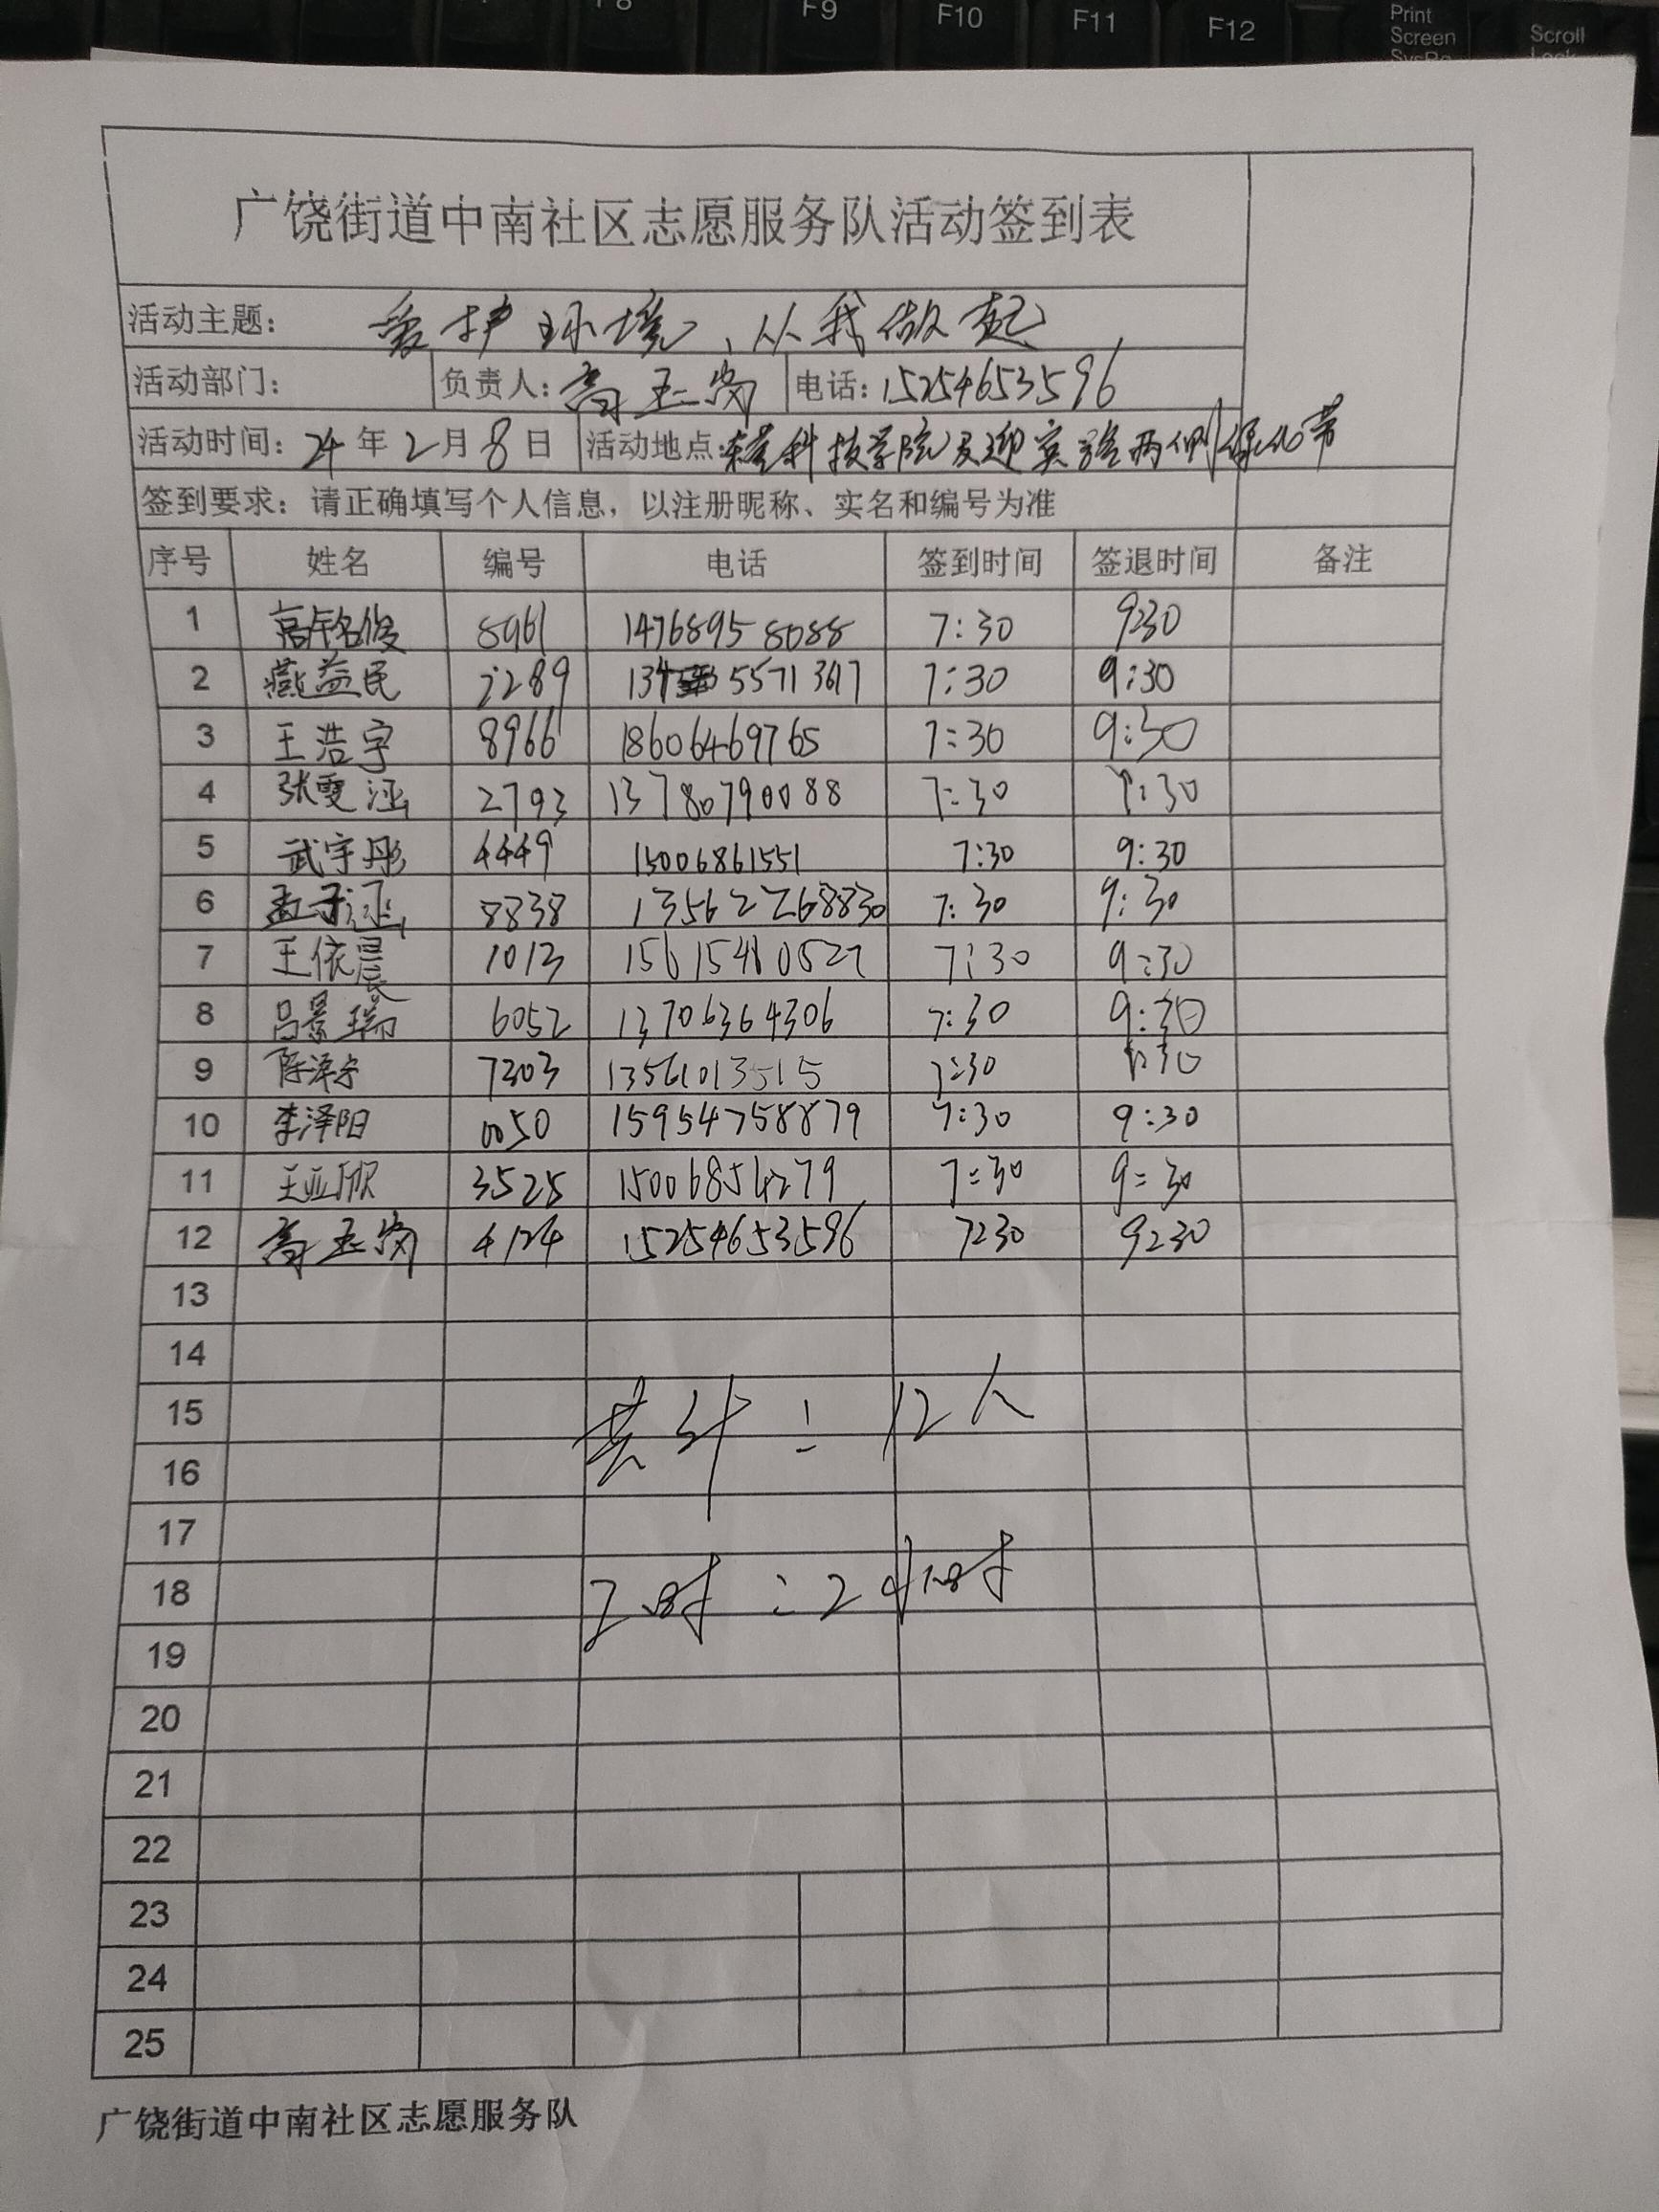 F8 F9 F10 F11 F12 Print Screen SysRq Scroll Lock
广饶街道中南社区志愿服务队活动签到表
活动主题: 爱护环境、从我做起
活动部门: 负责人: 高玉岗 电话: 15254653596
活动时间: 24年2月8日 活动地点: 科技学院及迎宾路两侧绿化带
签到要求: 请正确填写个人信息，以注册昵称、实名和编号为准
序号 姓名 编号 电话 签到时间 签退时间 备注
1 高铭俊 8961 14768958088 7:30 9:30
2 燕益民 2289 134 5571367 7:30 9:30
3 王浩宇 8966 18606469765 7:30 9:30
4 张雯涵 2793 13780790088 7:30 9:30
5 武宇彤 4449 15006861551 7:30 9:30
6 孟子涵 8838 135622768830 7:30 9:30
7 王依晨 1013 15615480527 7:30 9:30
8 吕景瑞 6052 13706364306 7:30 9:30
9 陈泽宇 7203 13561013515 7:30 9:30
10 李泽阳 0050 15954758879 7:30 9:30
11 王亚欣 3525 15006854279 7:30 9:30
12 高玉岗 4124 15254653596 7:30 9:30
13
14
15 共计：12人
16
17
18 工时：2小时
19
20
21
22
23
24
25
广饶街道中南社区志愿服务队